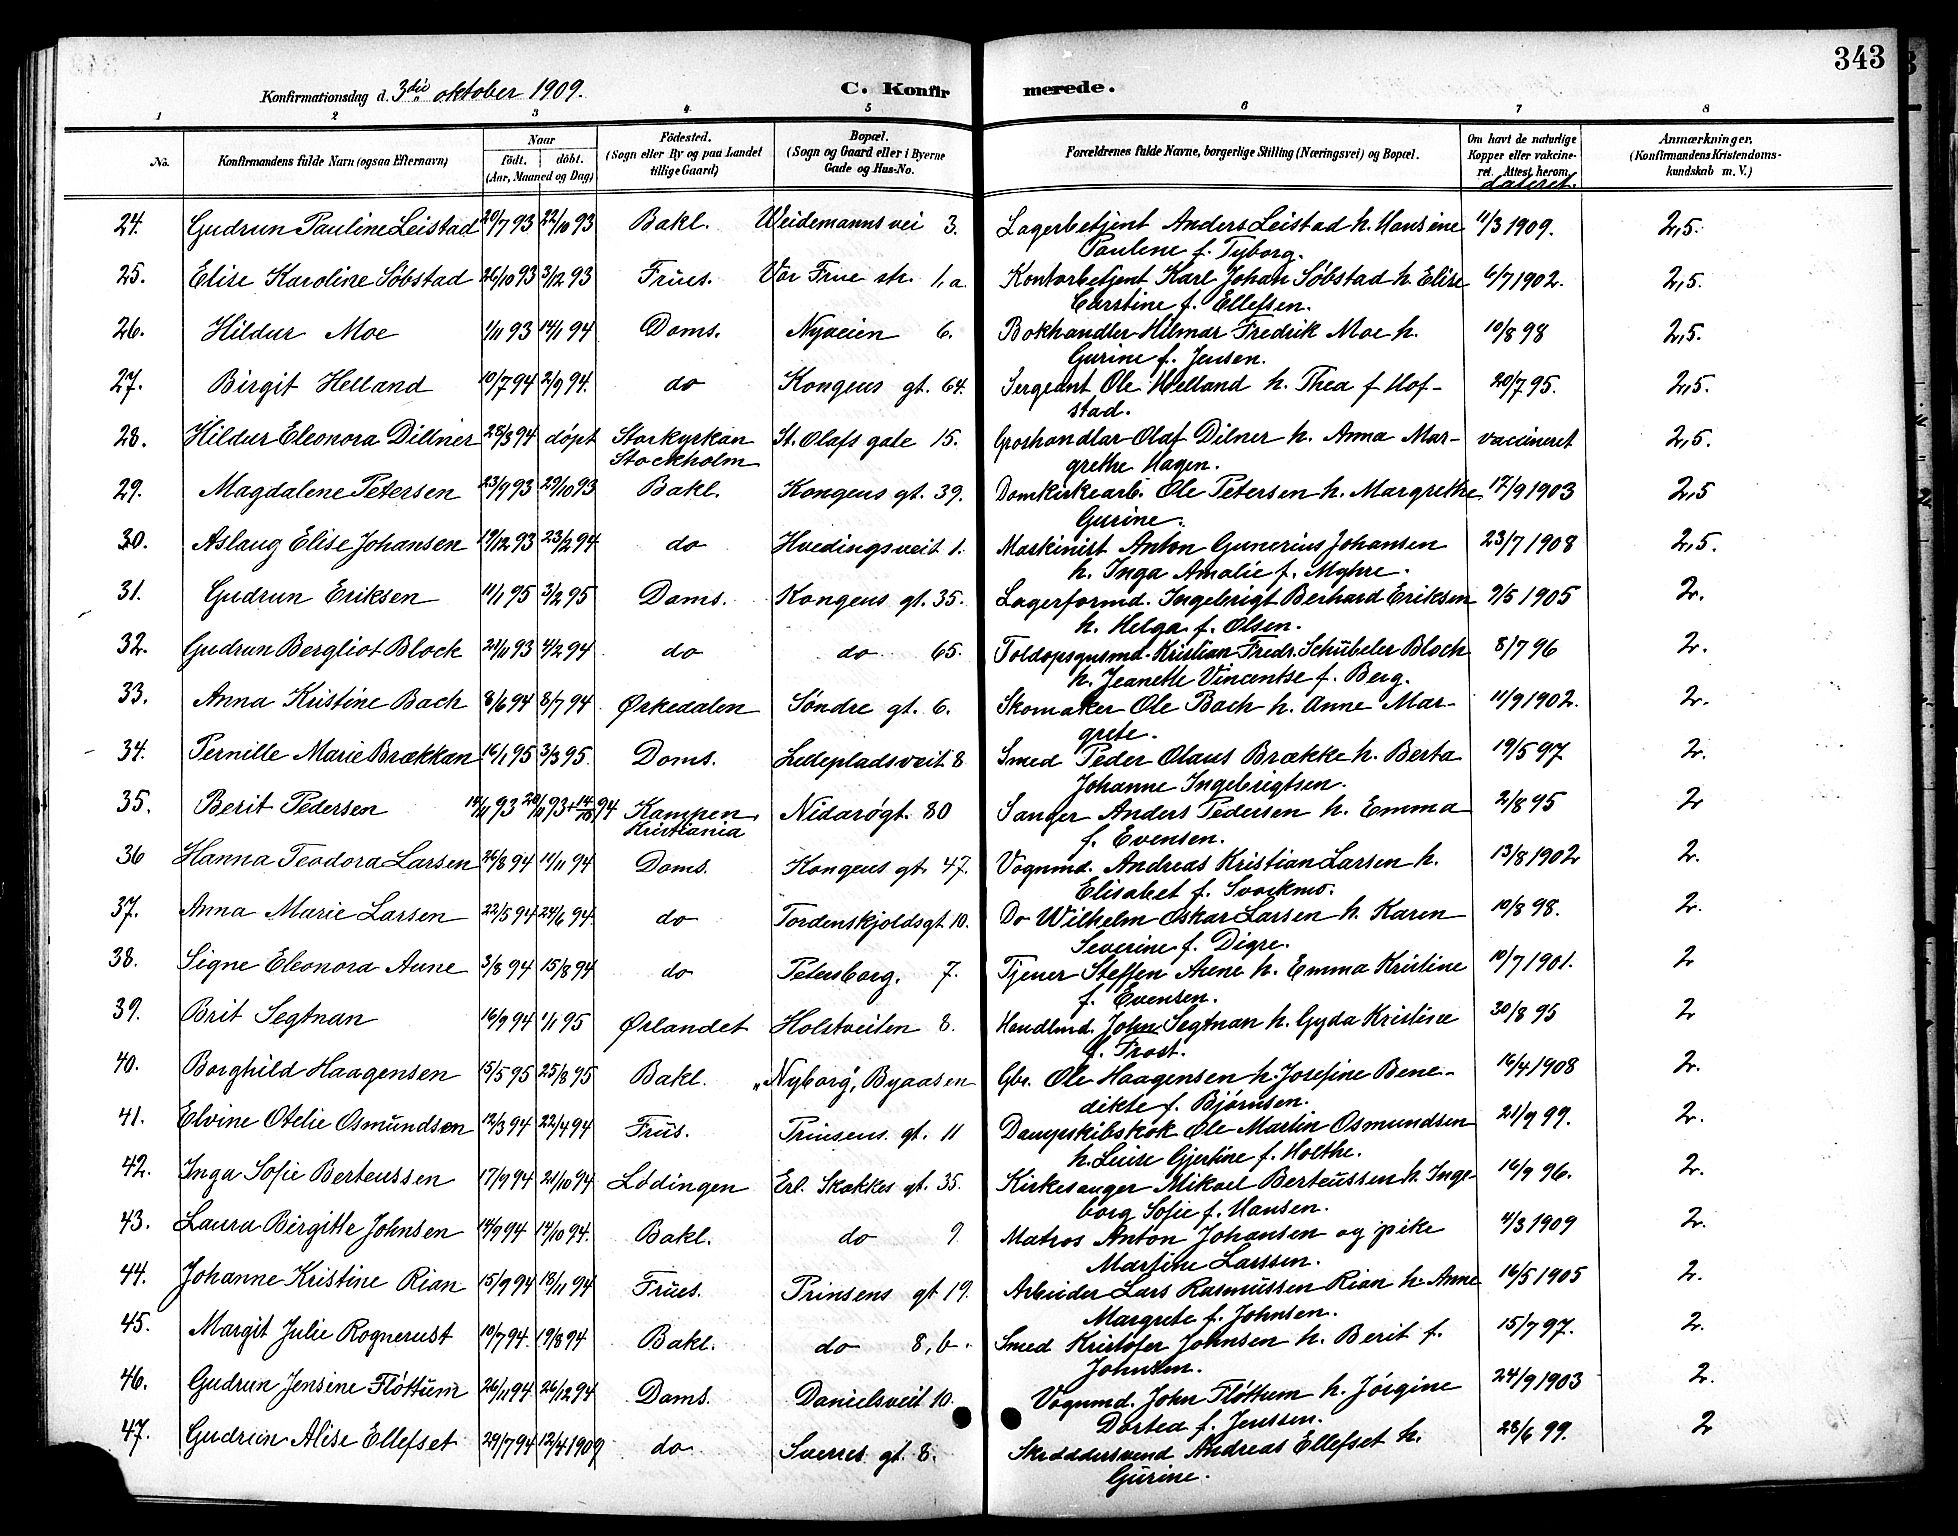 343
Konfirmationsdag d. 3die oktober 1909. C. Konfirmerede.
1 2 3 4 5 6 7 8
No. Konfirmandens fulde Navn (ogsaa Efternavn) Naar født. døbt. (Aar, Maaned og Dag) Fødested. (Sogn eller By og paa Landet tillige Gaard) Bopæl. (Sogn og Gaard eller i Byerne Gade og Hus-No. Forældrenes fulde Navne, borgerlige Stilling (Næringsvei) og Bopæl. Om havt de naturlige Kopper eller vakcineret. Attest herom dateret. Anmærkninger, (Konfirmandens Kristendomskundskab m. V.)
24. Gudrun Pauline Leistad 20/7 93 22/10 93 Bakl. Weidemannsvei 3. Lagerbetjent Anders Leistad h. Hansine 11/3 1909. 2,5.
Paulene f. Tyborg.
25. Elise Karoline Söbstad 26/10 93 3/12 93 Frues. Vor Frue str. 1,a Kontorbetjent Karl Johan Söbstad h. Elise 6/7 1902. 2,5.
Carstine f. Ellefsen.
26. Hildur Moe 1/11 93 14/1 94 Doms. Nyveien 6. Bokhandler Hilmar Fredrik Moe h. 10/8 98 2,5.
Gurine f. Jensen.
27. Birgit Helland 10/7 94 2/9 94. do Kongens gt. 64. Sergeant Ole Helland h. Thea f Hof- 20/7 95. 2,5.
stad.
28. Hildur Eleonora Dillner 28/3 94 döpt Storkyrkan St. Olafs gate 15. Groshandlar Olaf Dilner h. Anna Mar- vaccineret 2,5.
Stockholm grethe Hagen.
29. Magdalene Petersen 23/9 93 29/10 93 Bakl. Kongens gt. 39. Domkirkearb. Ole Petersen h. Margrethe 17/9 1903 2,5
Gurine.
30. Aslaug Elise Johansen 19/12 93 23/2 94 do Hvedingsveit 1. Maskinist Anton Gunerius Johansen 23/7 1908 2,5.
h. Inga Amalie f. Myhre.
31. Gudrun Eriksen 11/1 95 3/2 95 Doms. Kongens gt. 35. Lagerformd. Ingebrigt Berhard Eriksen 9/5 1905 2.
h. Helga f. Olsen.
32. Gudrun Bergliot Block 21/11 93 4/2 94 do do 65. Toldopsynsmd. Kristian Fredr. Schübeler Bloch 8/7 96 2.
h. Jeanette Vincentse f. Berg.
33. Anna Kristine Bach 8/6 94 8/7 94 Ørkedalen Søndre gt. 6. Skomaker Ole Bach h. Anne Mar- 11/9 1902. 2.
grete.
34. Pernille Marie Brækkan 16/1 95 3/3 95. Doms. Ledepladsveit 8 Smed Peder Olaus Brække h. Berta 19/5 97 2.
Johanne Ingebrigtsen.
35. Berit Pedersen 14/11 93 20/11 93 + 14/10 94 Kampen, Nidarøgt. 80 Sanger Anders Pedersen h. Emma 2/8 95 2
Kristiania f. Evensen.
36 Hanna Teodora Larsen 26/8 94 11/11 94 Doms. Kongens gt. 47. Vognmd. Andreas Kristian Larsen h. 13/8 1902 2.
Elisabet f. Svorkmo.
37. Anna Marie Larsen 22/5 94 24/6 94. do Tordenskjoldsgt 10. Do Wilhelm Oskar Larsen h. Karen 10/8 98. 2.
Severine f. Digre.
38. Signe Eleonora Aune 3/8 94 15/8 94 do Petersborg. 7. Tjener Steffen Aune h. Emma Kristine 10/7 1901. 2
f. Evensen.
39. Brit Segtnan 16/9 94 1/1 95 Ørlandet Holtveiten 8. Handlmd. John Segtnan h. Gyda Kristine 30/8 95 2
f. Frost.
40. Borghild Haagensen 15/5 95 25/8 95 Bakl. "Nyborg", Byaasen Gbr. Ole Haagensen h. Josefine Bene- 16/4 1908 2.
dikte f. Bjørnsen.
41. Elvine Otelie Osmundsen 12/3 94 22/4 94 Frus. Prinsens gt. 11 Dampskibskok Ole Martin Osmundsen 21/9 99. 2.
h. Luise Gjertine f. Holthe.
42. Inga Sofie Berteussen 17/9 94 21/10 94 Lödingen Erl. Skakkes gt. 35. Kirkesanger Mikael Berteussen h. Inge- 16/9 96. 2.
borg Sofie f. Hansen.
43. Laura Birgitte Johnsen 14/9 94 14/10 94. Bakl. do 9 Matros Anton Johansen og pike 11/3 1909 2.
Martine Larssen.
44. Johanne Kristine Rian 15/9 94 18/11 94 Frues. Prinsens gt 19. Arbeider Lars Rasmussen Rian h. Anne 16/5 1905 2.
Margrete f. Johnsen.
45. Margit Julie Rognerust 10/7 94. 19/8 94 Bakl. do 8,b. Smed Kristofer Johnsen h. Berit f. 15/7 97. 2.
Johnsen.
46. Gudrun Jensine Fløttum 26/11 94 26/12 94 Doms. Danielsveit 10. Vognmd. John Fløttum h. Jørgine 24/9 1903 2.
Dortea f. Jenssen.
47. Gudrun Alise Ellefset 29/7 94 12/4 1909 do Sverres gt. 8. Skræddersvend Andreas Ellefset h. 28/6 99. 2
Gurine.